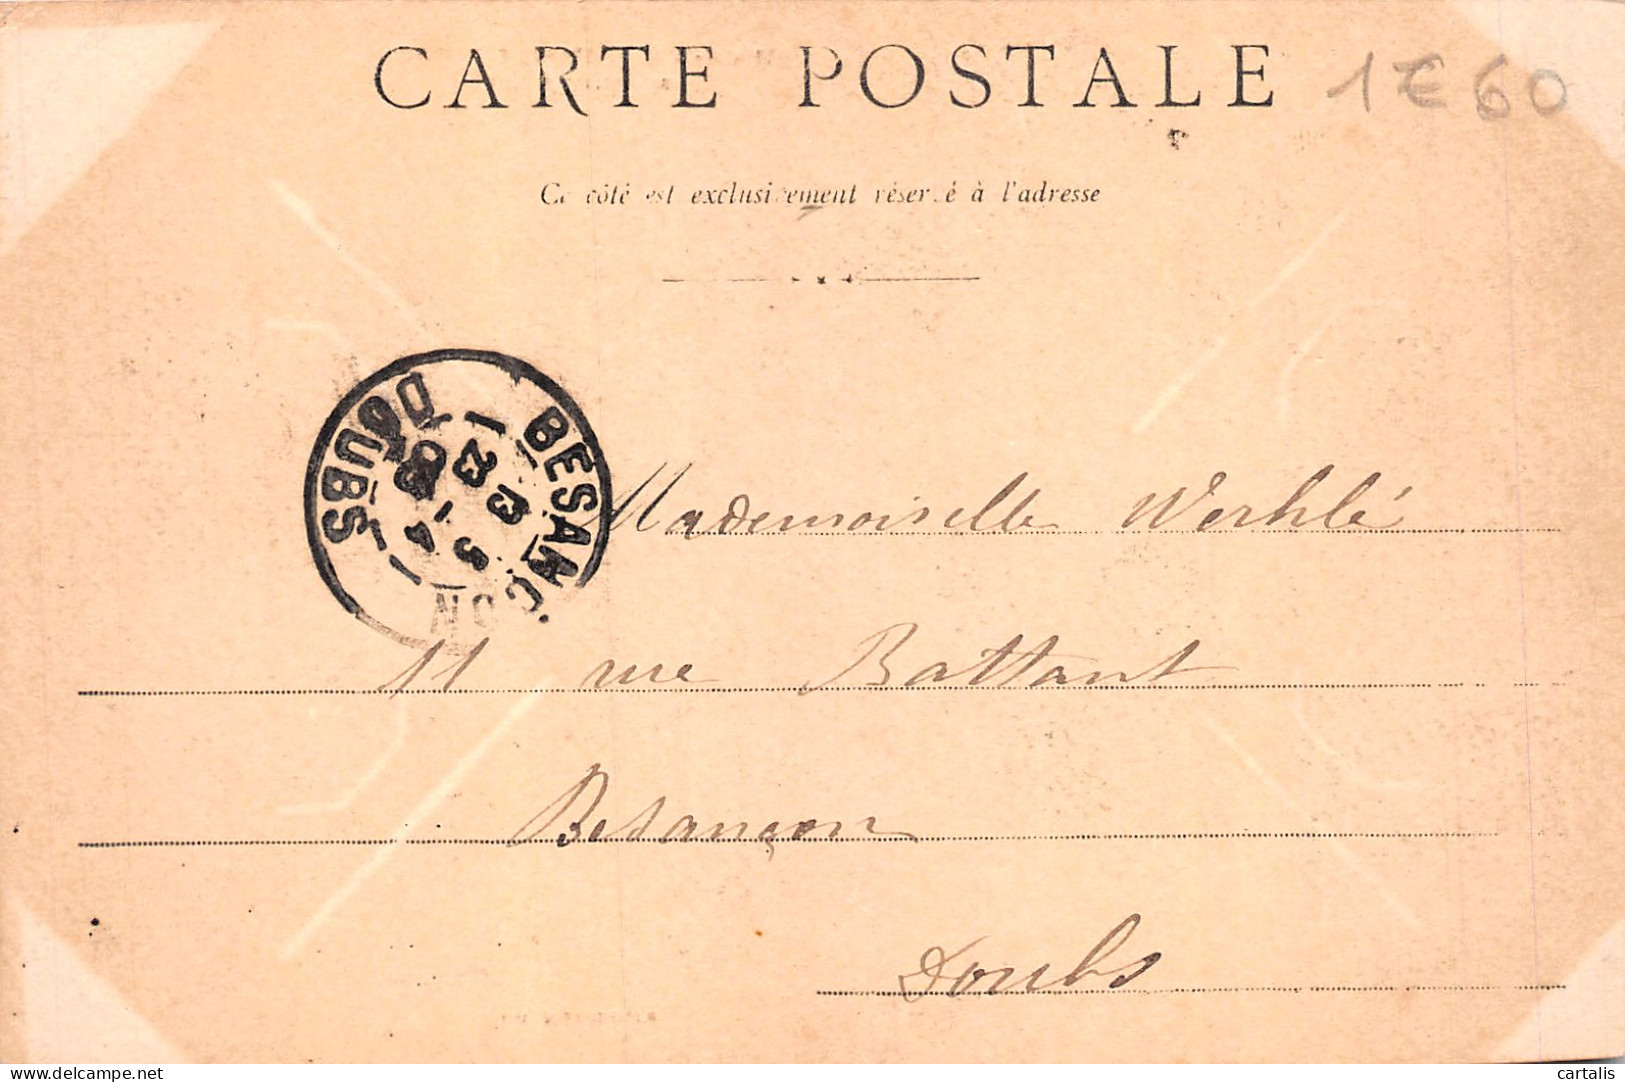 CARTE POSTALE
1€60
Ce côté est exclusivement réservé à l'adresse
BESANÇON
DOUBS
Mademoiselle Werhlé
11 rue Battant
Besançon
Doubs
delcampe.net
cartalis